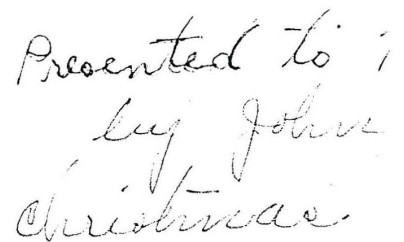 Presented to
by John
Christmas.